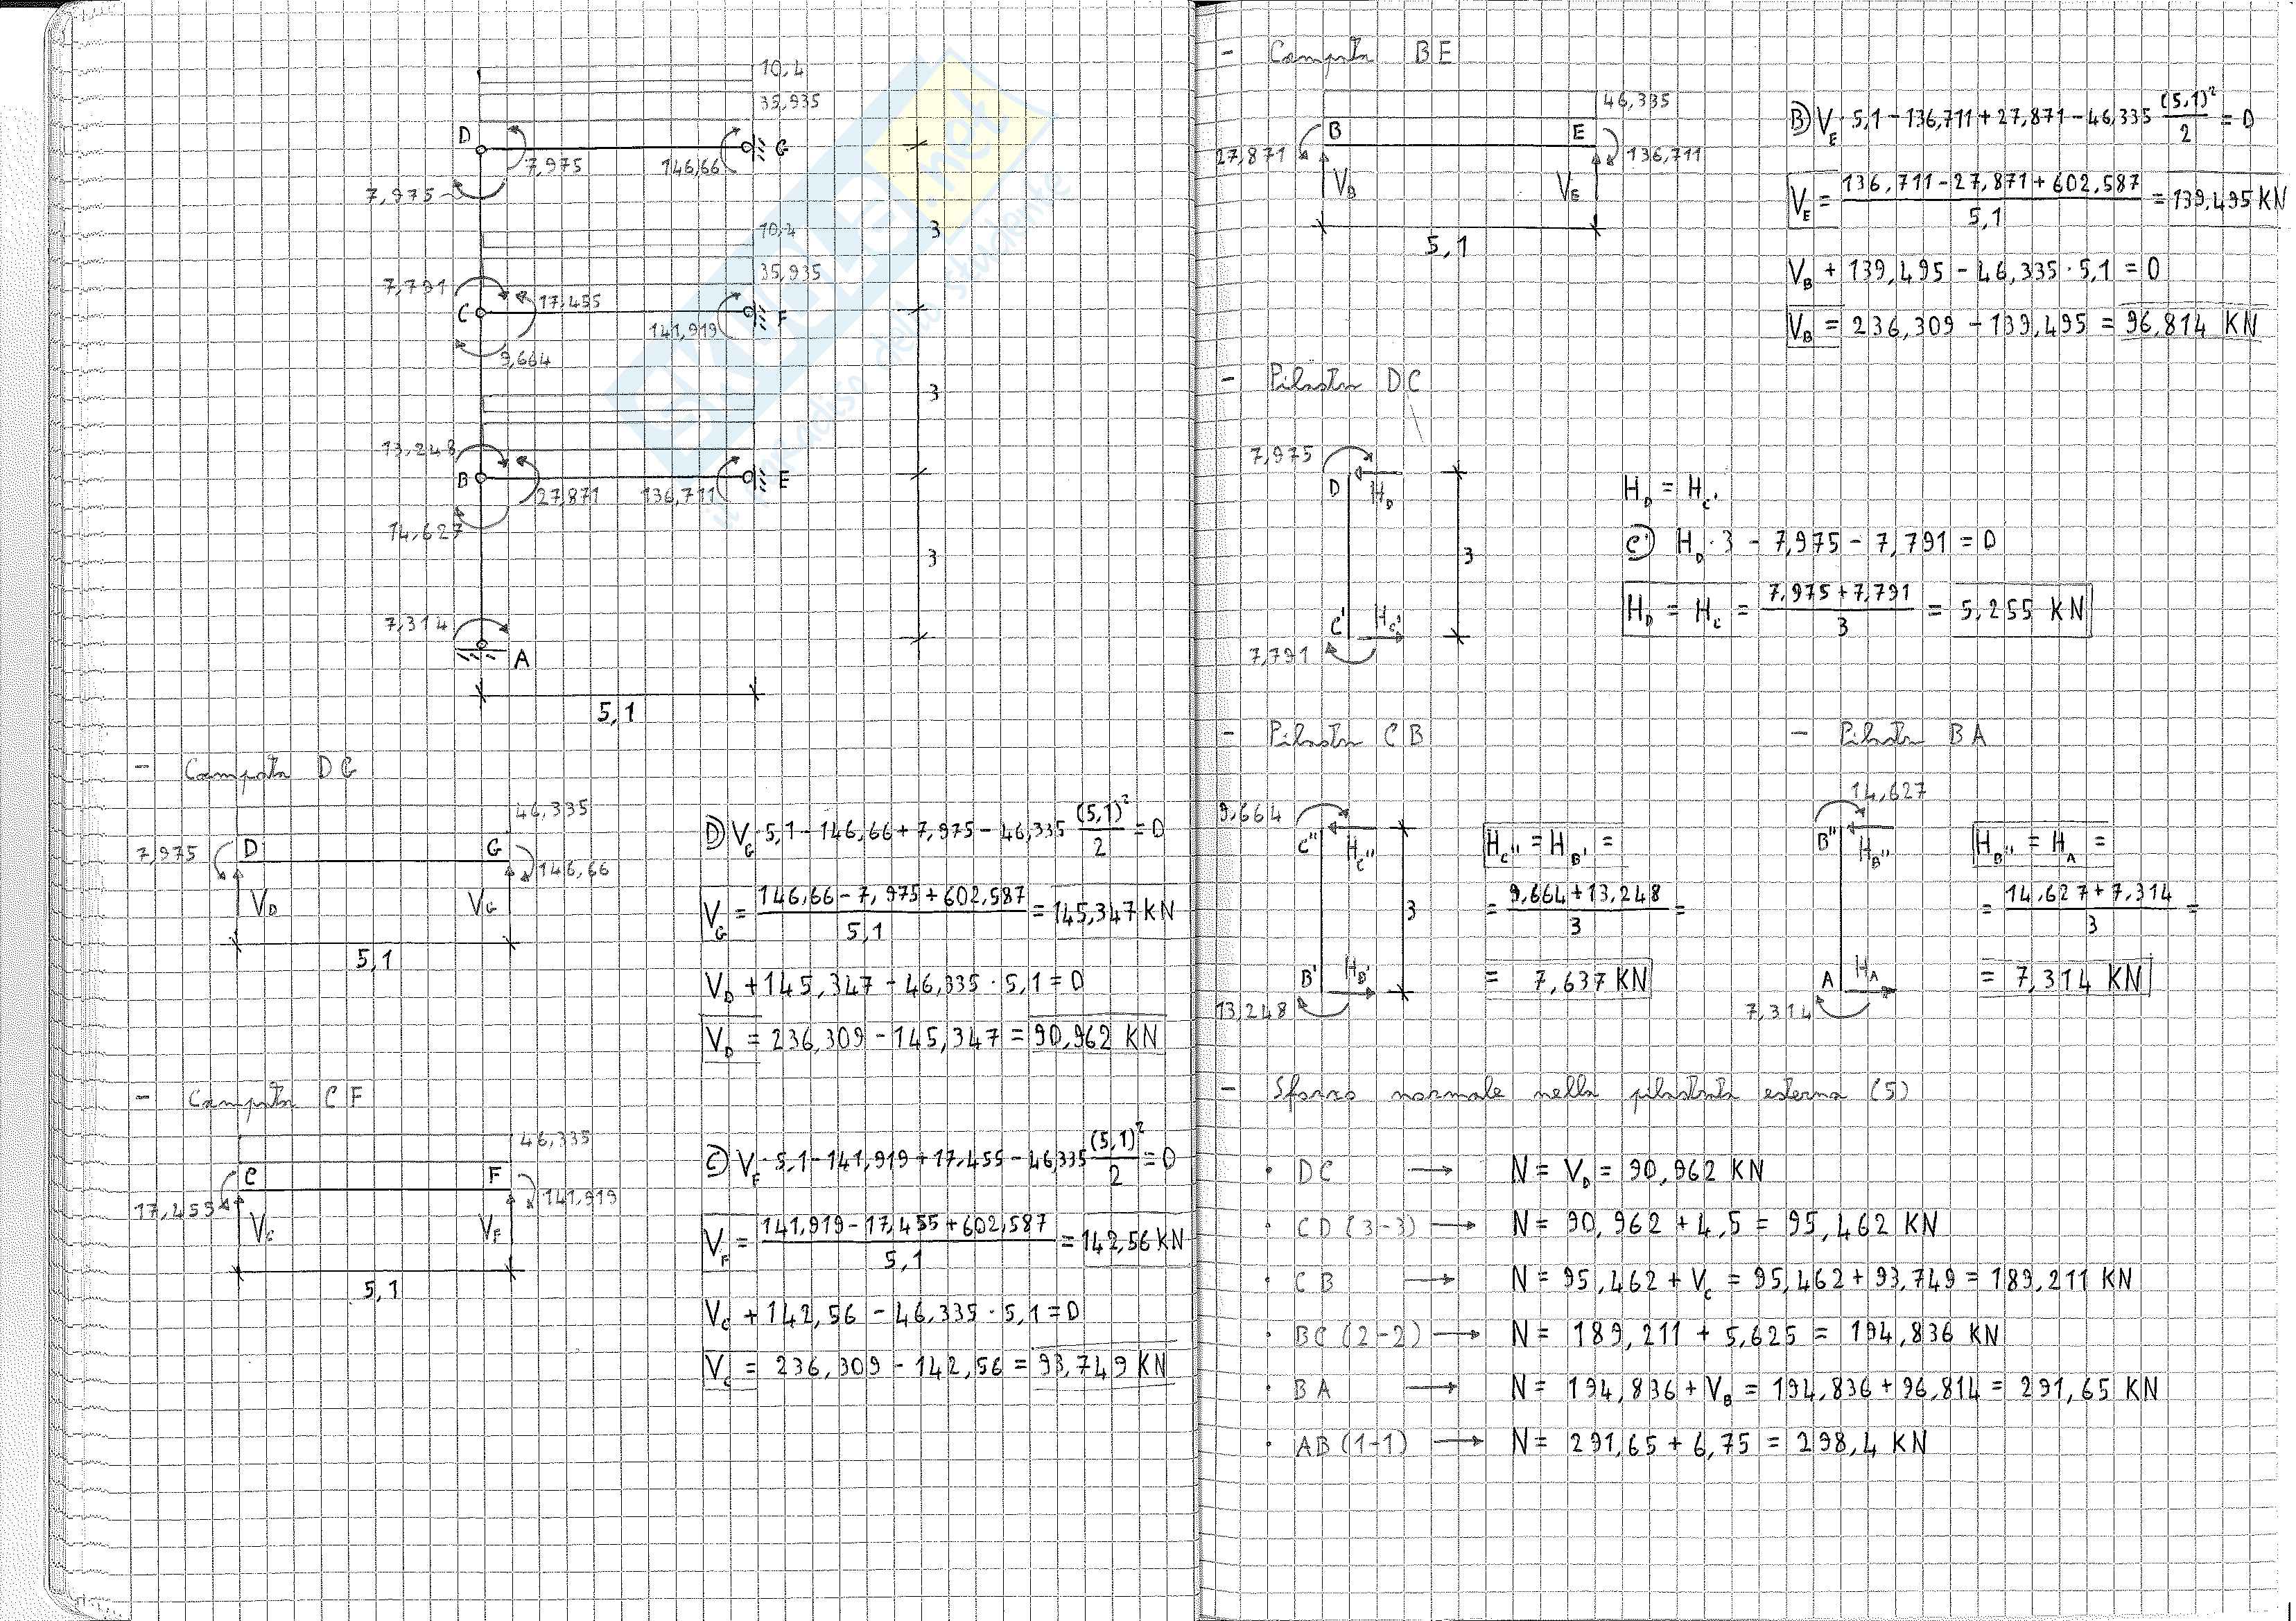 10,4
35,935
D
G
7,975
146,66
7,975
3
10,4
35,935
7,791
C
17,455
141,919
F
9,664
3
13,248
B
27,871
136,711
E
14,627
3
7,314
A
5,1
- Campata DG
46,335
7,975
D
G
146,66
V_D
V_G
5,1
D) V_G · 5,1 - 146,66 + 7,975 - 46,335 (5,1)²/2 = 0
V_G = (146,66 - 7,975 + 602,587)/5,1 = 145,347 KN
V_D + 145,347 - 46,335 · 5,1 = 0
V_D = 236,309 - 145,347 = 90,962 KN
- Campata CF
46,335
C
F
17,455
141,919
V_C
V_F
5,1
C) V_F · 5,1 - 141,919 + 17,455 - 46,335 (5,1)²/2 = 0
V_F = (141,919 - 17,455 + 602,587)/5,1 = 142,56 KN
V_C + 142,56 - 46,335 · 5,1 = 0
V_C = 236,309 - 142,56 = 93,749 KN
- Campata BE
46,335
B
E
27,871
136,711
V_B
V_E
5,1
B) V_E · 5,1 - 136,711 + 27,871 - 46,335 (5,1)²/2 = 0
V_E = (136,711 - 27,871 + 602,587)/5,1 = 139,495 KN
V_B + 139,495 - 46,335 · 5,1 = 0
V_B = 236,309 - 139,495 = 96,814 KN
- Pilastro DC
7,975
D
H_D
3
C'
H_C'
7,791
H_D = H_C'
C') H_D · 3 - 7,975 - 7,791 = 0
H_D = H_C = (7,975 + 7,791)/3 = 5,255 KN
- Pilastro CB
9,664
C''
H_C''
3
B'
H_B'
13,248
H_C'' = H_B' =
= (9,664 + 13,248)/3 =
= 7,637 KN
- Pilastro BA
14,627
B''
H_B''
A
H_A
7,314
H_B'' = H_A =
= (14,627 + 7,314)/3 =
= 7,314 KN
- Sforzo normale nella pilastrata esterna (5)
· DC → N = V_D = 90,962 KN
· CD (3-3) → N = 90,962 + 4,5 = 95,462 KN
· CB → N = 95,462 + V_C = 95,462 + 93,749 = 189,211 KN
· BC (2-2) → N = 189,211 + 5,625 = 194,836 KN
· BA → N = 194,836 + V_B = 194,836 + 96,814 = 291,65 KN
· AB (1-1) → N = 291,65 + 6,75 = 298,4 KN